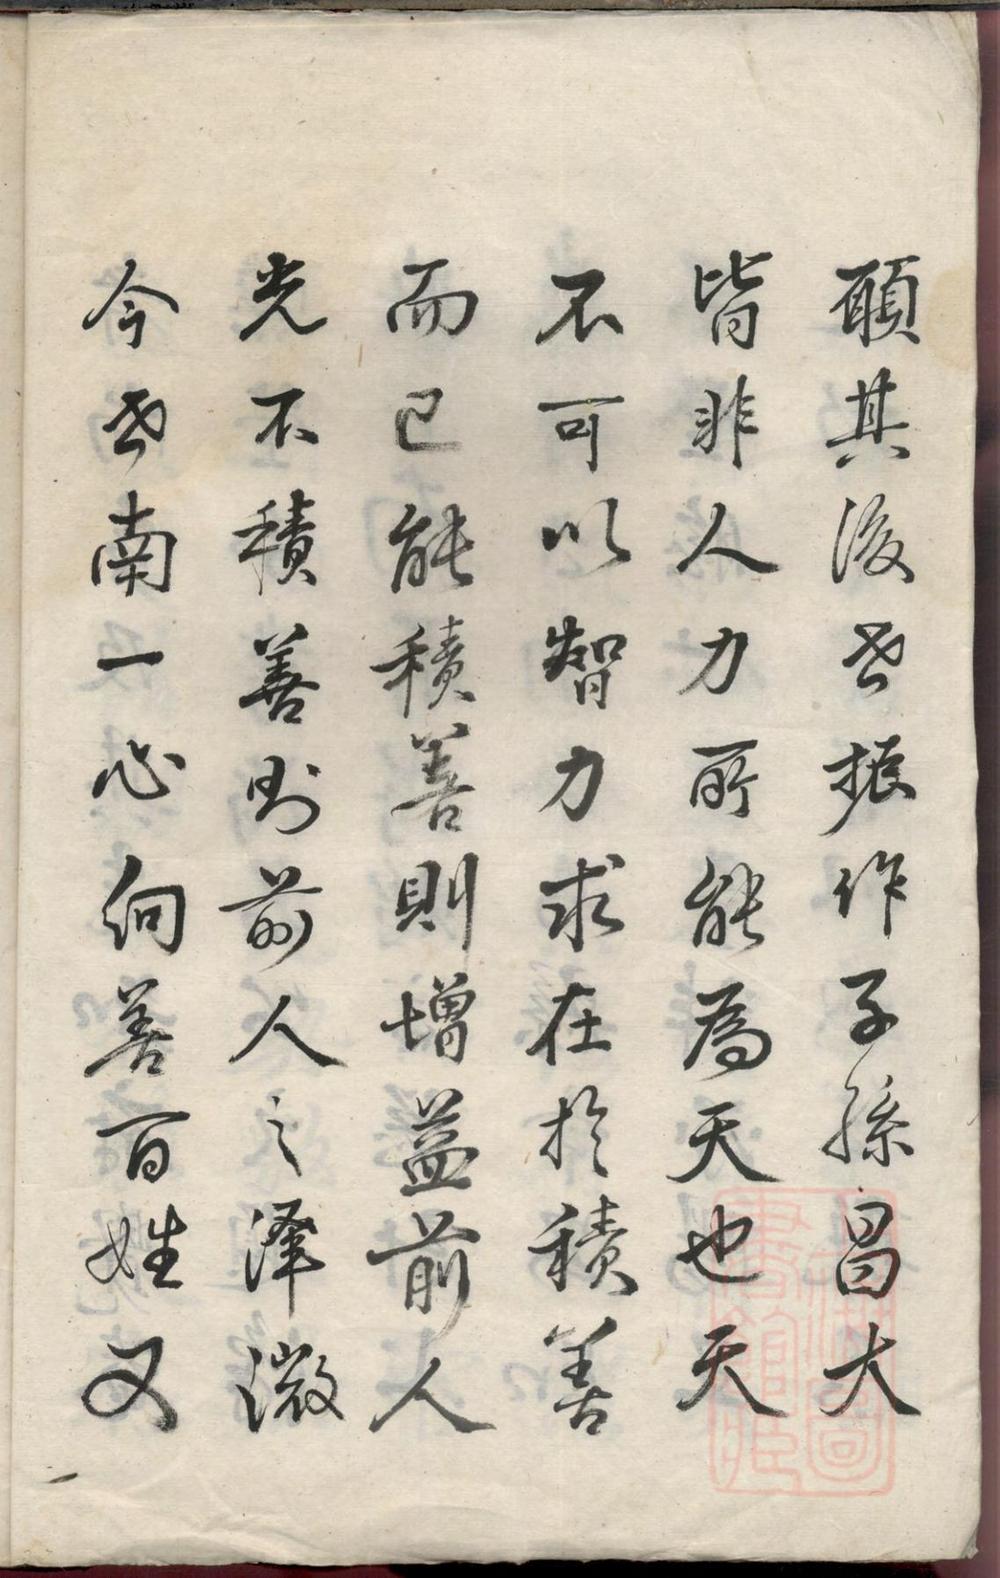 顧其後世振作子孫昌大
皆非人力所能為天也天
不可以智力求在於積善
而已能積善則增益前人
光不積善則前人之澤微
今世南一心向善百姓又
上海圖書館藏